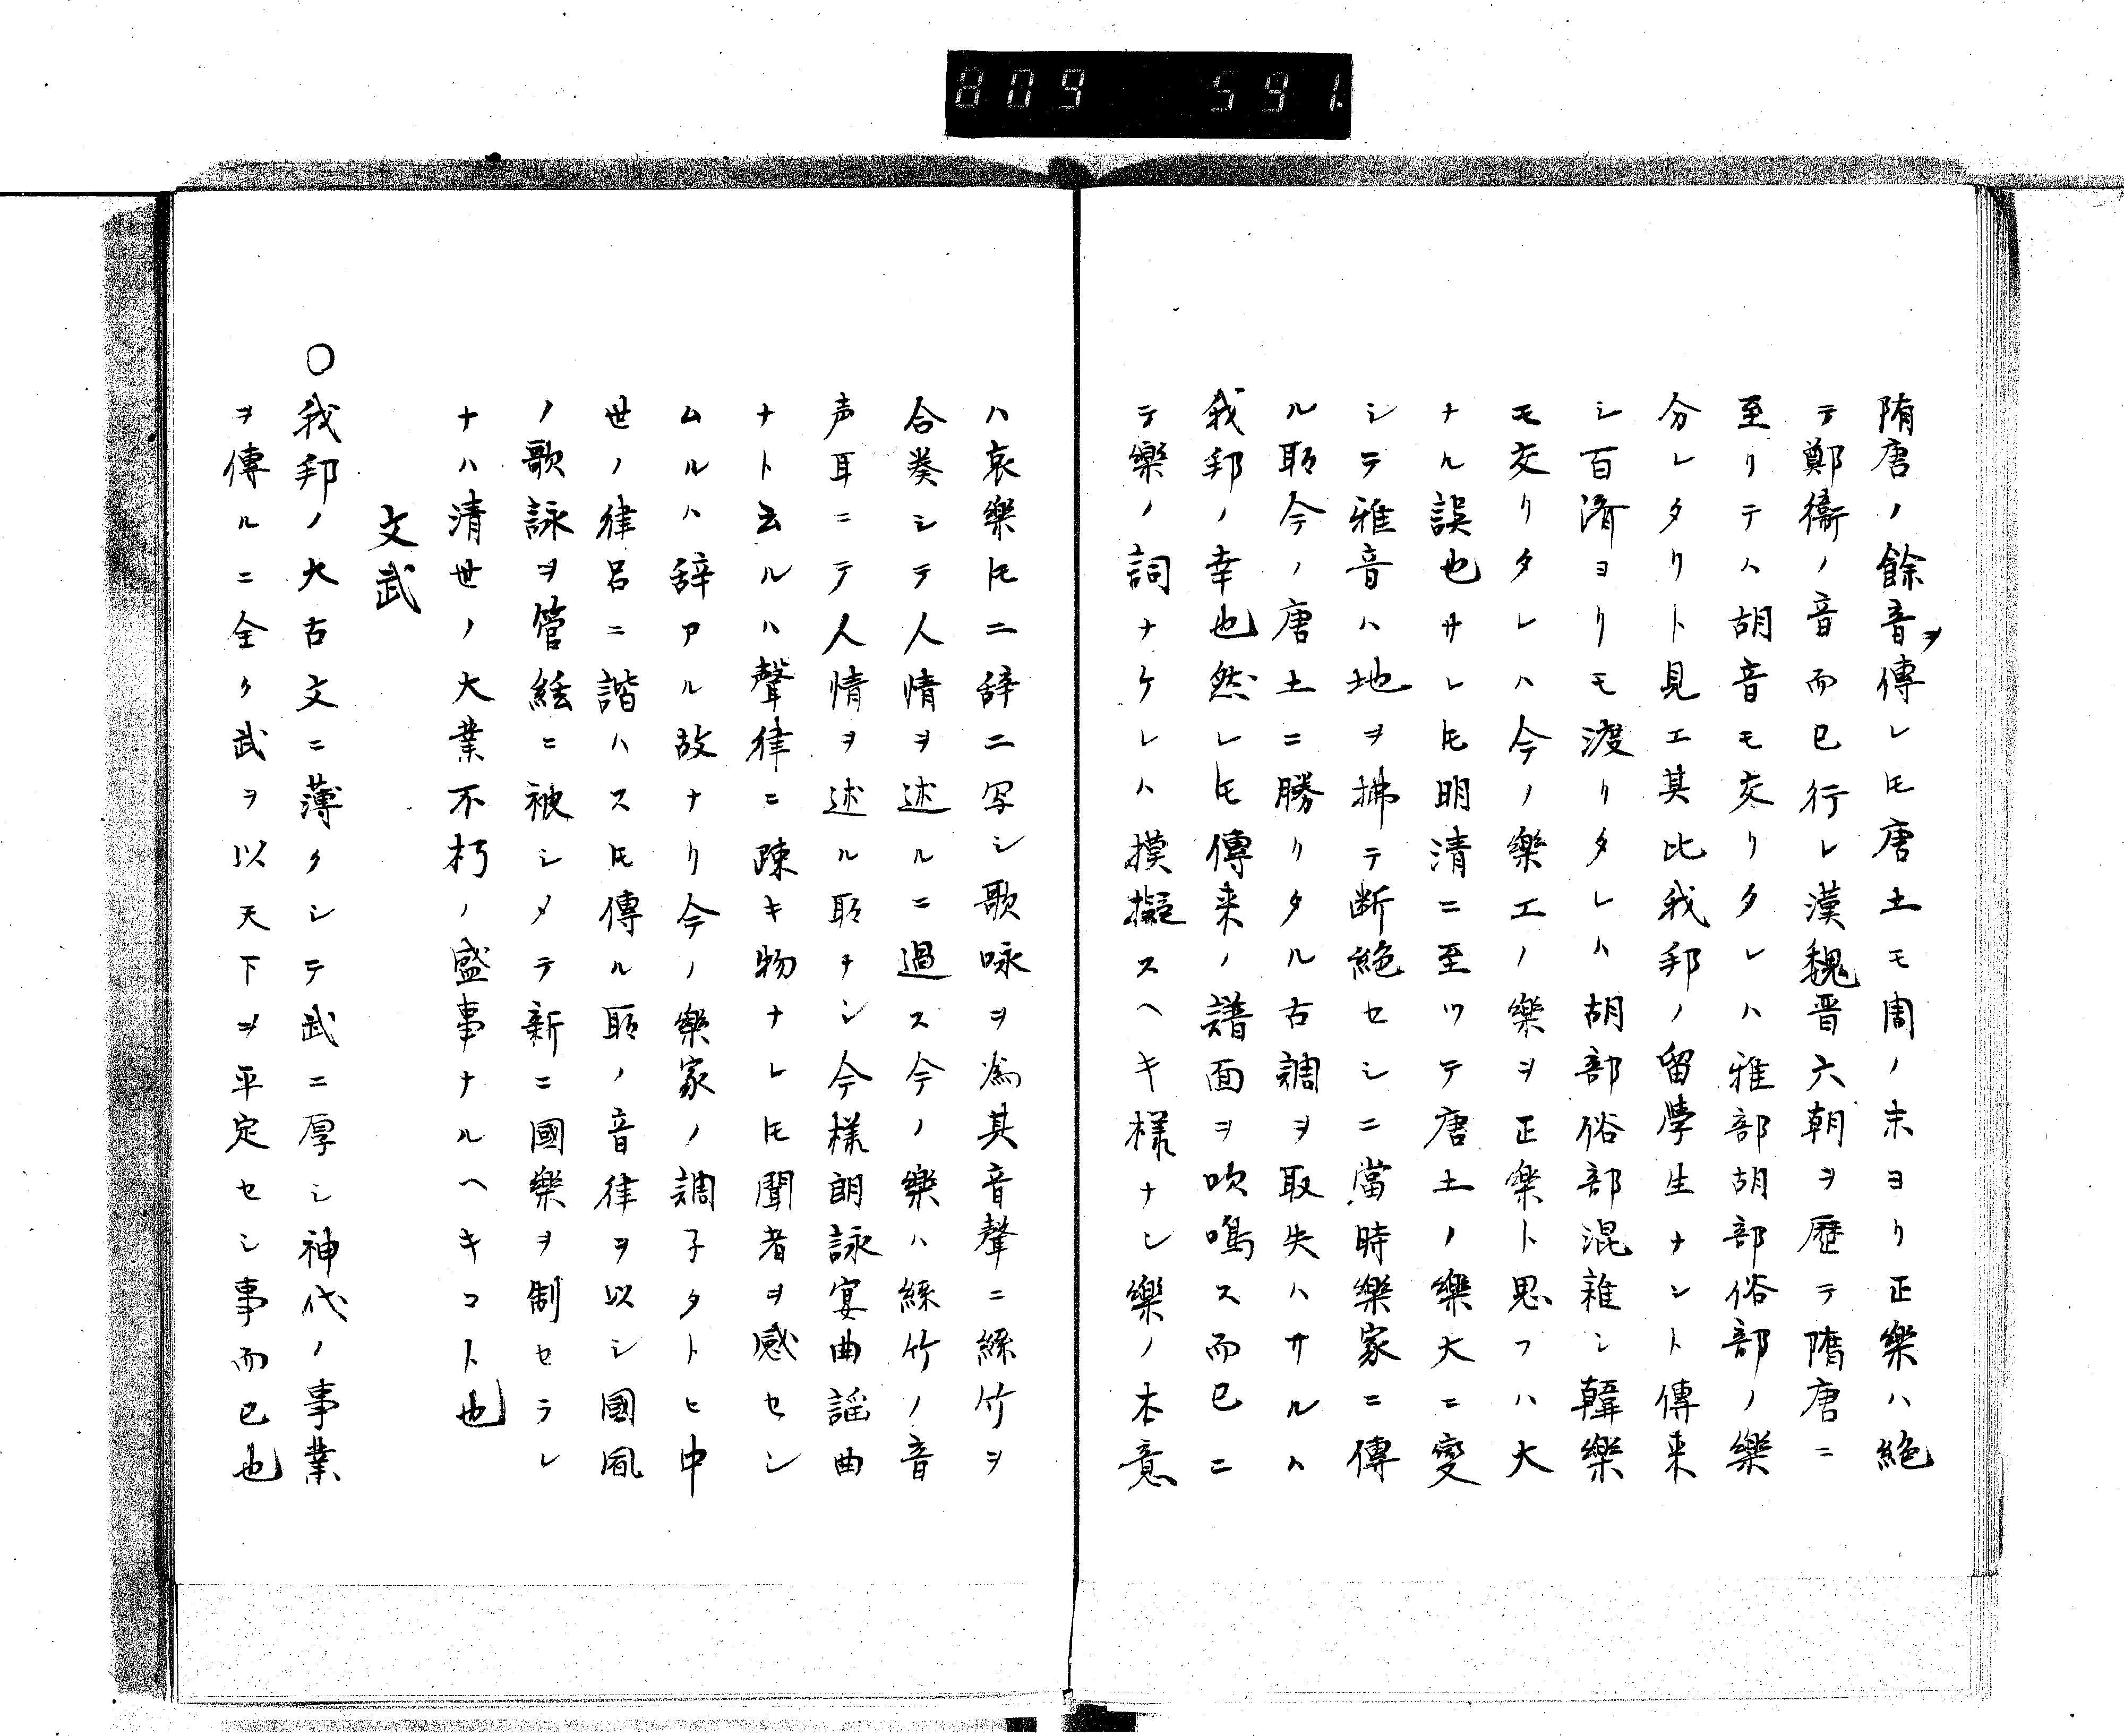 809 591
隋唐ノ餘音ヲ傳レ𪜈唐土モ周ノ末ヨリ正樂ハ絶
テ鄭衞ノ音而已行レ漢魏晋六朝ヲ歴テ隋唐ニ
至リテハ胡音モ交リタレハ雅部胡部俗部ノ樂
分レタリト見エ其比我邦ノ留學生ナント傳来
シ百済ヨリモ渡リタレハ胡部俗部混雑シ韓樂
モ交リタレハ今ノ樂工ノ樂ヲ正樂ト思フハ大
ナル誤也サレ𪜈明清ニ至ツテ唐土ノ樂大ニ変
シテ雅音ハ地ヲ拂テ断絶セシニ當時樂家ニ傳
ル耴今ノ唐土ニ勝リタル古調ヲ取失ハサルハ
我邦ノ幸也然レ𪜈傳来ノ譜面ヲ吹鳴ス而已ニ
テ樂ノ詞ナケレハ摸擬スヘキ様ナシ樂ノ本意
ハ哀樂𪜈ニ辞ニ写シ歌咏ヲ為其音聲ニ絲竹ヲ
合奏シテ人情ヲ述ルニ過ス今ノ樂ハ絲竹ノ音
声耳ニテ人情ヲ述ル耴ナシ今様朗詠宴曲謡曲
ナト云ルハ聲律ニ疎キ物ナレ𪜈聞者ヲ感セシ
ムルハ辞アル故ナリ今ノ樂家ノ調子タトヒ中
世ノ律呂ニ諧ハス𪜈傳ル耴ノ音律ヲ以シ國風
ノ歌詠ヲ管絃ニ被シメテ新ニ國樂ヲ制セラレ
ナハ清世ノ大業不朽ノ盛事ナルヘキコト也
文武
○我邦ノ大古文ニ薄クシテ武ニ厚シ神代ノ事業
ヲ傳ルニ全ク武ヲ以天下ヲ平定セシ事而已也